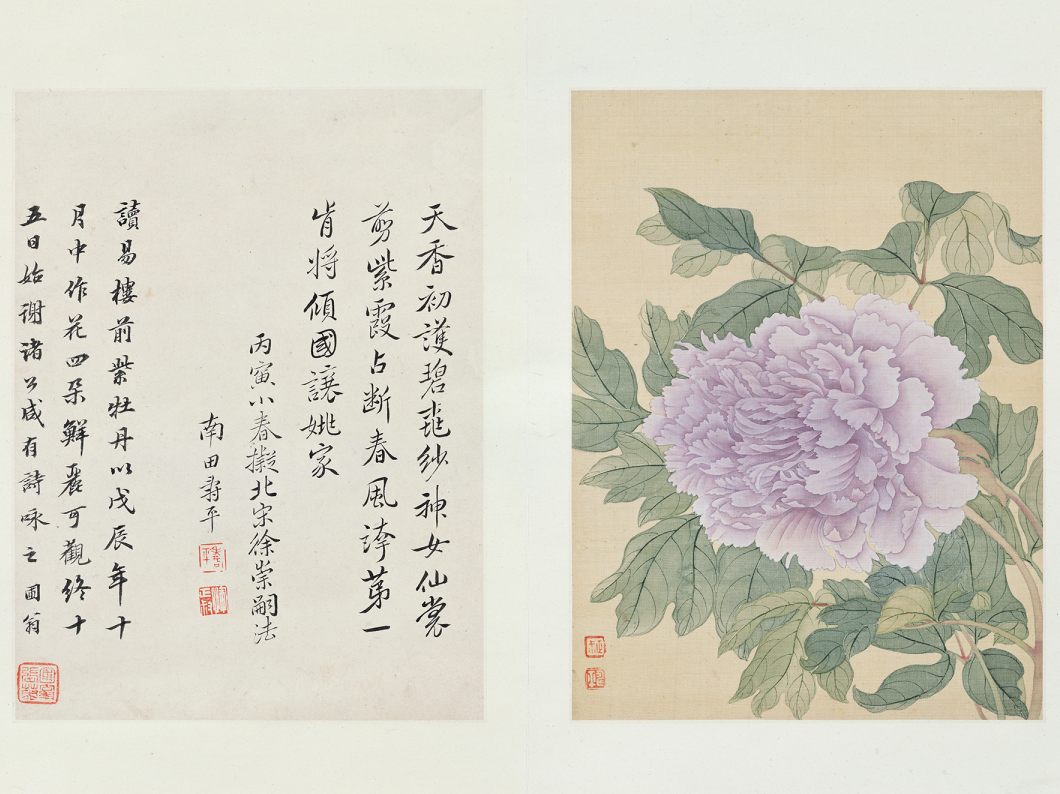 天香初護碧蕤紗神女仙裳
剪紫霞占斷春風誇第一
肯將傾國讓姚家
丙寅小春擬北宋徐崇嗣法
南田壽平
讀易樓前紫牡丹以戊辰年十
月中作花四朵鮮麗可觀終十
五日始謝諸公咸有詩咏之圃翁